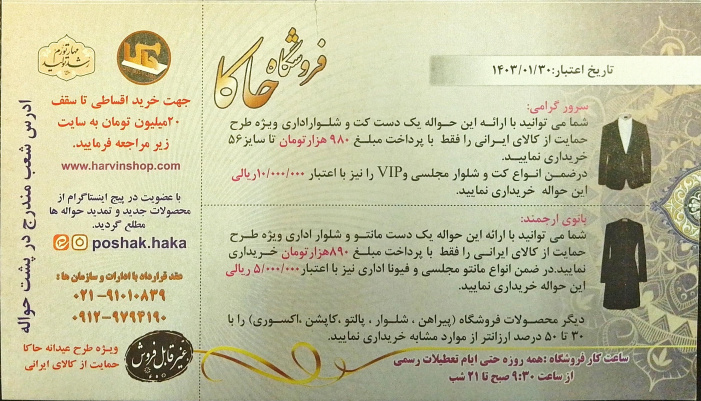 فروشگاه حاکا
تاریخ اعتبار:۱۴۰۳/۰۱/۳۰
سرور گرامی:
شما می توانید با ارائه این حواله یک دست کت و شلوار اداری ویژه طرح
حمایت از کالای ایرانی را فقط با پرداخت مبلغ ۹۸۰ هزارتومان تا سایز ۵۶
خریداری نمایید.
درضمن انواع کت و شلوار مجلسی و VIP را نیز با اعتبار ۱۰/۰۰۰/۰۰۰ریالی
این حواله خریداری نمایید.
بانوی ارجمند:
شما می توانید با ارائه این حواله یک دست مانتو و شلوار اداری ویژه طرح
حمایت از کالای ایرانی را فقط با پرداخت مبلغ ۸۹۰هزارتومان خریداری
نمایید.در ضمن انواع مانتو مجلسی و فیونا اداری نیز با اعتبار۵/۰۰۰/۰۰۰ ریالی
این حواله خریداری نمایید.
دیگر محصولات فروشگاه (پیراهن ، شلوار ، پالتو ،کاپشن ،اکسسوری) را با
۳۰ تا ۵۰ درصد ارزانتر از موارد مشابه خریداری نمایید.
ساعت کار فروشگاه :همه روزه حتی ایام تعطیلات رسمی
از ساعت ۹:۳۰ صبح تا ۲۱ شب
حاکا
مهار تورم
رشد تولید
جهت خرید اقساطی تا سقف
۲۰میلیون تومان به سایت
زیر مراجعه فرمایید.
www.harvinshop.com
با عضویت در پیج اینستاگرام از
محصولات جدید و تمدید حواله ها
مطلع گردید.
poshak.haka
عقد قرارداد با ادارات و سازمان ها :
۰۲۱-۹۱۰۱۰۸۳۹
۰۹۱۲-۹۷۹۴۱۹۰
غیر قابل فروش
ویژه طرح عیدانه حاکا
حمایت از کالای ایرانی
ادرس شعب مندرج در پشت حواله